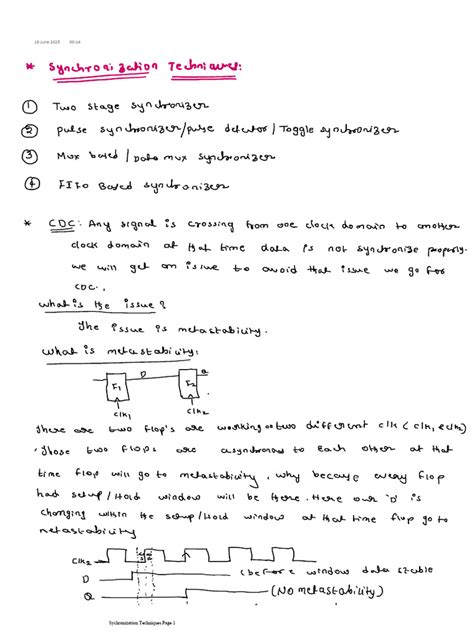 19 June 2025 00:14
* Synchronization Techniques:
① Two stage synchronizer
② pulse synchronizer/pulse detector / Toggle synchronizer
③ Mux based / Data mux synchronizer
④ FIFO Based synchronizer
* CDC: Any signal is crossing from one clock domain to another
clock domain at that time data is not synchronize properly.
we will get an issue to avoid that issue we go for
CDC.
what is the issue?
The issue is metastability.
What is metastability:
D Q
F1 F2
clk1 clk2
There are two flop's are working on two different clk (clk1 & clk2)
. Those two flops are asynchronous to each other at that
time flop will go to metastability, why because every flop
had setup/Hold window will be there. Here our 'D' is
changing within the setup/Hold window at that time flop go to
metastability
Clk2
D (before window data stable
Q (No metastability)
Sychronization Techniques Page 1